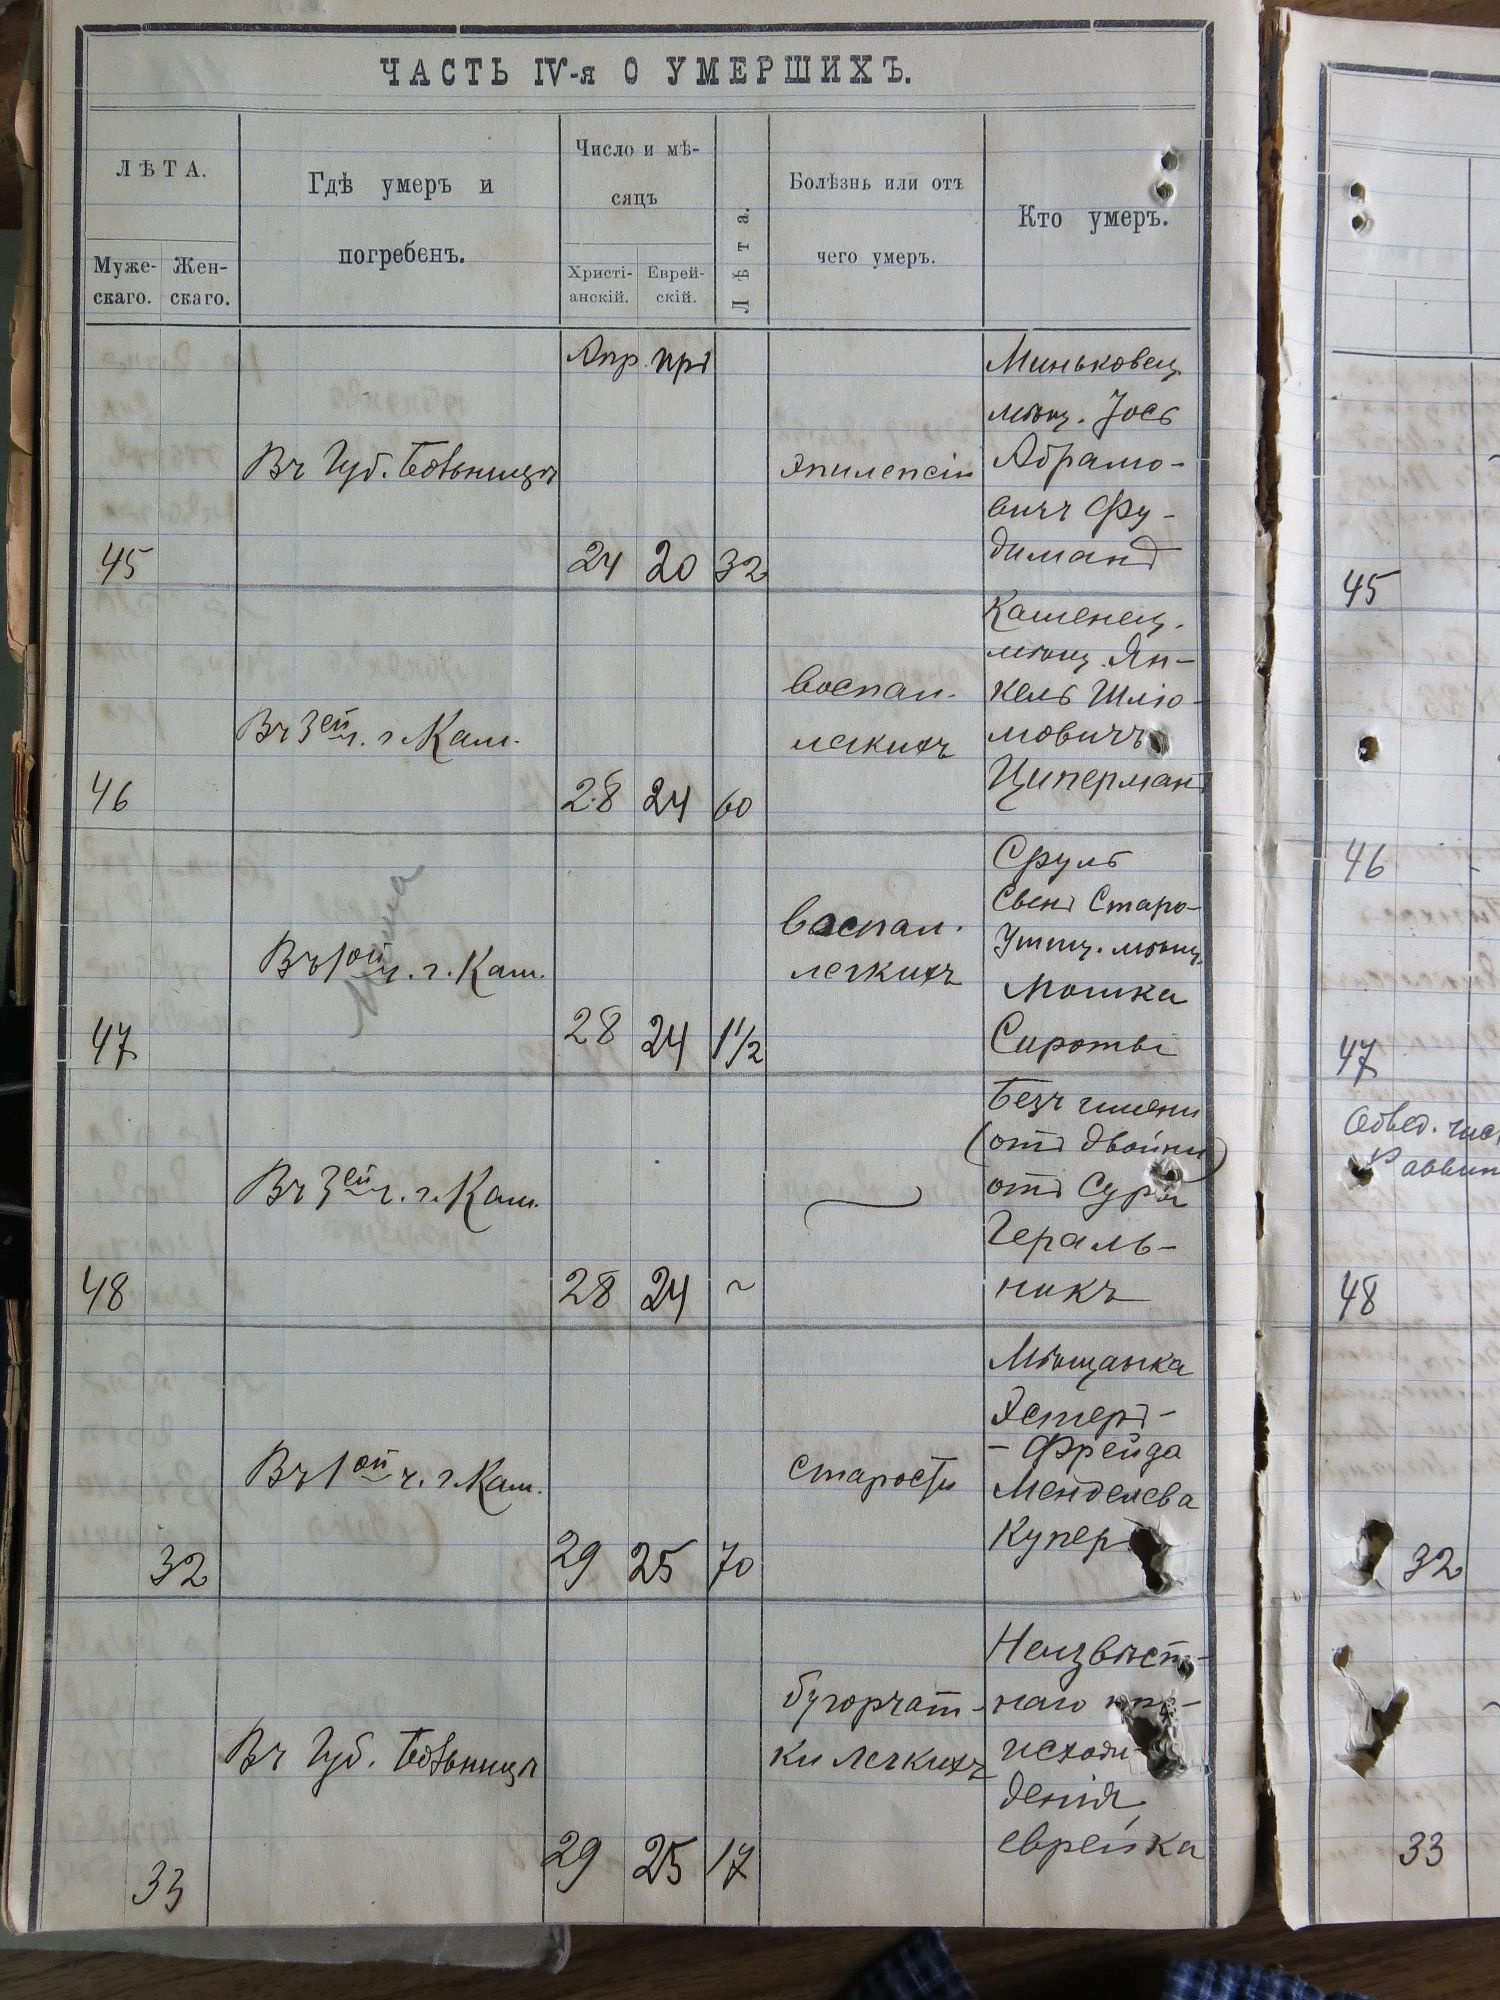 ЧАСТЬ IV-я О УМЕРШИХЪ.
ЛѢТА.
Муже-
скаго.
Жен-
скаго.
Гдѣ умеръ и
погребенъ.
Число и мѣ-
сяцъ
Христі-
анскій.
Еврей-
скій.
Лѣта.
Болѣзнь или отъ
чего умеръ.
Кто умеръ.
Апр.
45
Въ Губ. Больницѣ
24 20 32
эпилепсіи
Миньковец.
мѣщ. Іось
Абрамо-
вичъ Фу-
диманъ
46
Въ 3ей ч. г. Кам.
28 24 60
воспал.
легкихъ
Каменец.
мѣщ. Ян-
кель Шлiо-
мовичъ
Циперманъ
47
Въ 1ой ч. г. Кам.
28 24 1 1/2
воспал.
легкихъ
Сруль
Сынъ Старо-
мѣщ.
Мошка
Сироты
48
Въ 3ей ч. г. Кам.
28 24 ~
Безъ имени
(отъ двойни)
отъ Суры
Гераль-
никъ
32
Въ 1ой ч. г. Кам.
29 25 70
старости
Мѣщанка
Эстеръ-
-Фрейда
Менделева
Купер
33
Въ Губ. Больницѣ
29 25 17
бугорчат-
ки легкихъ
Неизвѣст-
наго
денія
еврейка
45
46
47
48
32
33